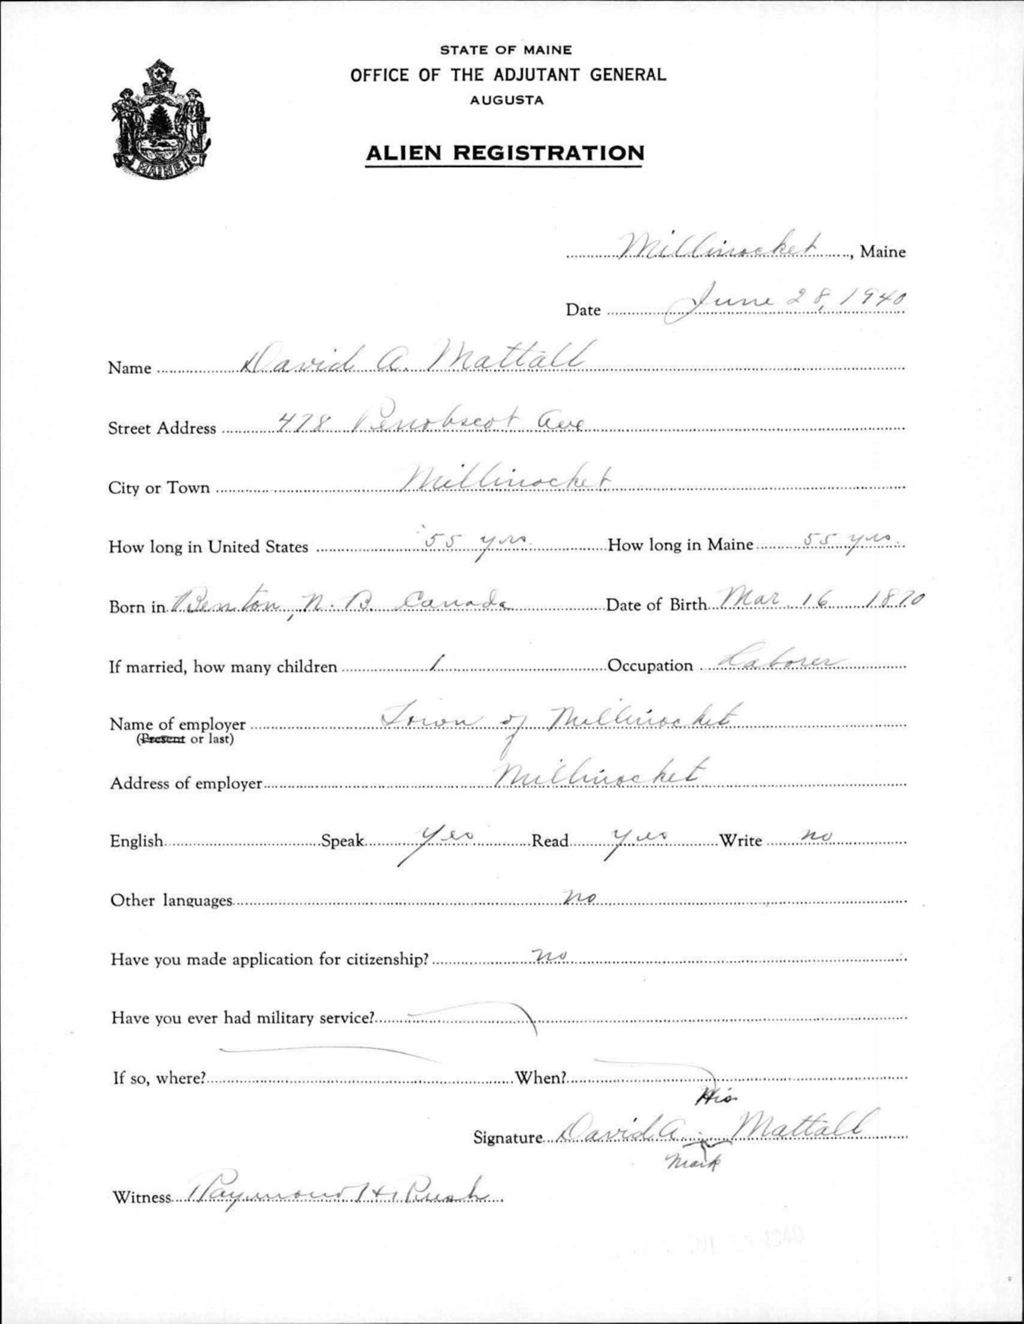 STATE OF MAINE
OFFICE OF THE ADJUTANT GENERAL
AUGUSTA
ALIEN REGISTRATION
MAINE
Millinocket, Maine
Date June 28, 1940
Name David A. Mattall
Street Address 478 Penobscot Ave
City or Town Millinocket
How long in United States 55 yrs How long in Maine 55 yrs
Born in Benton, N. B. Canada Date of Birth Mar 16 1870
If married, how many children 1 Occupation Laborer
Name of employer Town of Millinocket
(Present or last)
Address of employer Millinocket
English Speak Yes Read Yes Write no
Other languages no
Have you made application for citizenship? no
Have you ever had military service?
If so, where? When?
His
Signature David A. Mattall
Mark
Witness Raymond H. Rush